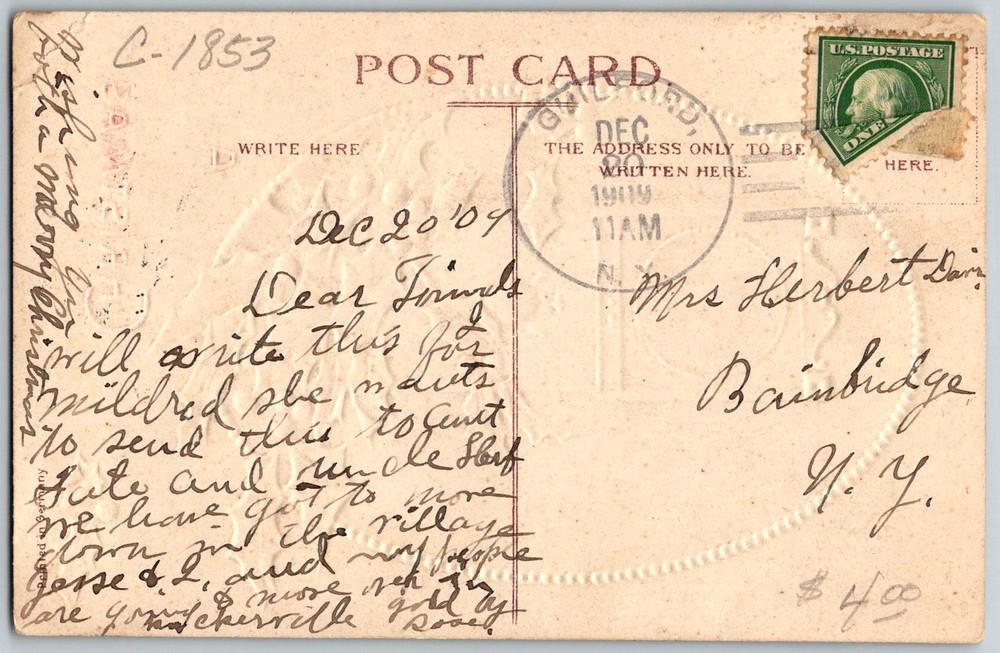 C-1853
POST CARD
U.S. POSTAGE
ONE
WRITE HERE
THE ADDRESS ONLY TO BE
WRITTEN HERE.
HERE.
GUILFORD,
DEC
20
1909
11 AM
N.Y.
Dec 20 '09
Dear Friends
I
will write this for
Mildred she wants
to send this to aunt
and uncle Herf
we have got to move
down in the village
Jesse & I, and my people
are going to move over in
gold by
wishing you
both a merry Christmas
Mrs Herbert
Bainbridge
N. Y.
Printed in Germany
$ 4.00